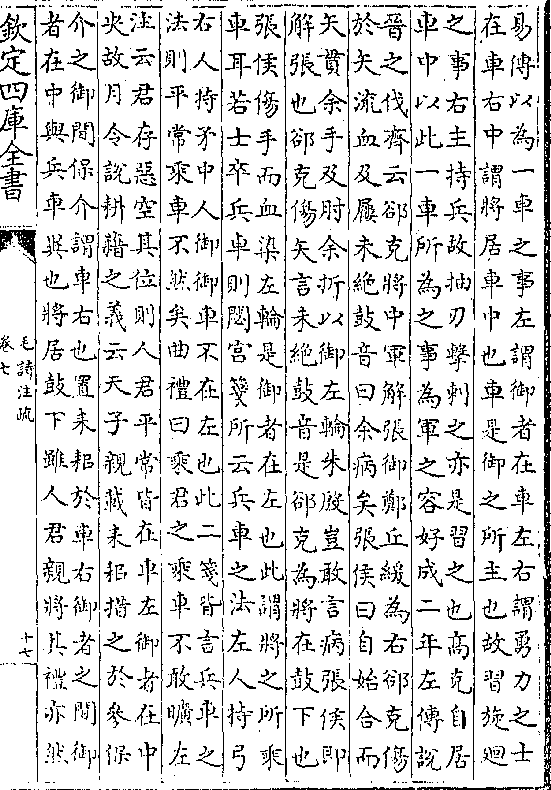 易傳以為一車之事左謂御者在車左右謂勇力之士
在車右中謂將居車中也車是御之所主也故習旋廻
之事右主持兵故抽刃擊刺之亦是習之也高克自居
車中以此一車所為之事為軍之容好成二年左傳說
晉之伐齊云郤克將中軍解張御鄭丘緩為右郤克傷
於矢流血及屨未絶鼓音曰余病矣張侯曰自始合而
矢貫余手及肘余折以御左輪朱殷豈敢言病張侯即
解張也郤克傷矢言未絶鼓音是郤克為將在鼓下也
張侯傷手而血染左輪是御者在左也此謂將之所乗
車耳若士卒兵車則閟宮箋所云兵車之法左人持弓
右人持矛中人御御車不在左也此二箋皆言兵車之
法則平常乗車不然矣曲禮曰乗君之乗車不敢曠左
注云君存惡空其位則人君平常皆在車左御者在中
央故月令說耕藉之義云天子親載耒耜措之於參保
介之御間保介謂車右也置耒耜於車右御者之間御
者在中與兵車異也將居鼓下雖人君親將其禮亦然
欽定四庫全書
毛詩注疏
卷七
十七